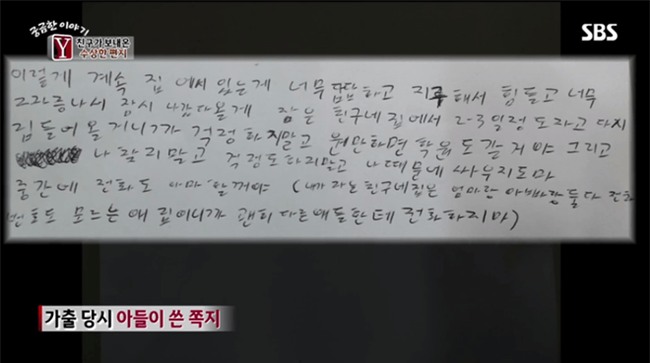 궁금한 이야기
Y 친구가 보내온
수상한 편지
SBS
이렇게 계속 집에서 있는게 너무 답답하고 지루해서 힘들고 너무
짜증나서 잠시 나갔다올게 잠은 친구네 집에서 2-3일정도자고 다시
집들어올거니까 걱정하지말고 원만하면 학원도갈거야 그리고
나 찾지말고 걱정도하지말고 나때문에 싸우지도마
중간에 전화도 아마 할꺼야 (내가 자는친구네집은 엄마랑 아빠랑 둘다 전화
번호도 모르는 애 집이니까 괜히 다른애들한테 전화하지마)
가출 당시 아들이 쓴 쪽지